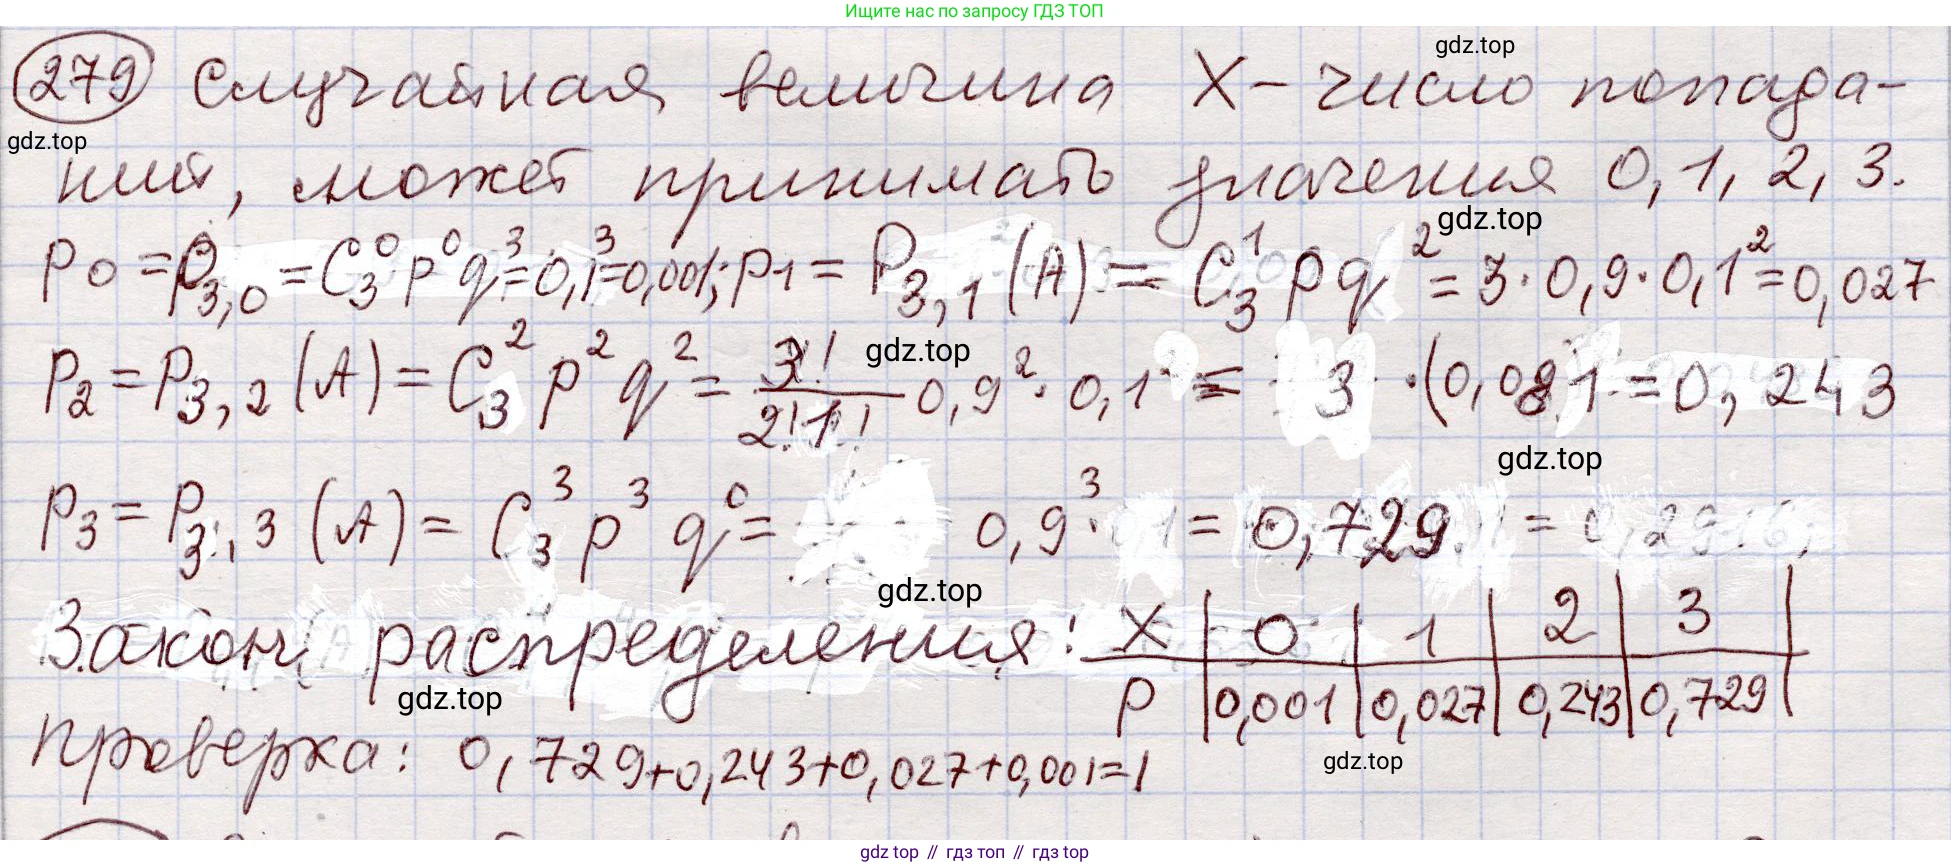 Ищите нас по запросу ГДЗ ТОП
279 Случайная величина X – число попада-
gdz.top
gdz.top
ний, может принимать значения 0, 1, 2, 3.
gdz.top
p0 = P3,0 = C₃⁰ p⁰ q³ = 0,1³ = 0,001; p1 = P3,1 (A) = C₃¹ p q² = 3 · 0,9 · 0,1² = 0,027
P2 = P3,2 (A) = C₃² p² q² = 3!/2!1! 0,9² · 0,1 = 3 · (0,081 = 0,243
gdz.top
gdz.top
P3 = P3,3 (A) = C₃³ p³ q⁰ = 0,9³ · 1 = 0,729 =
gdz.top
Закон распределения: X | 0 | 1 | 2 | 3 |
p | 0,001 | 0,027 | 0,243 | 0,729 |
gdz.top
проверка: 0,729+0,243+0,027+0,001=1
gdz.top
gdz top // гдз топ // гдз top